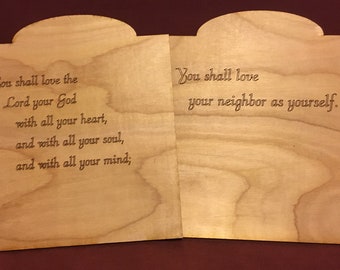 You shall love the
Lord your God
with all your heart,
and with all your soul,
and with all your mind;
You shall love
your neighbor as yourself.